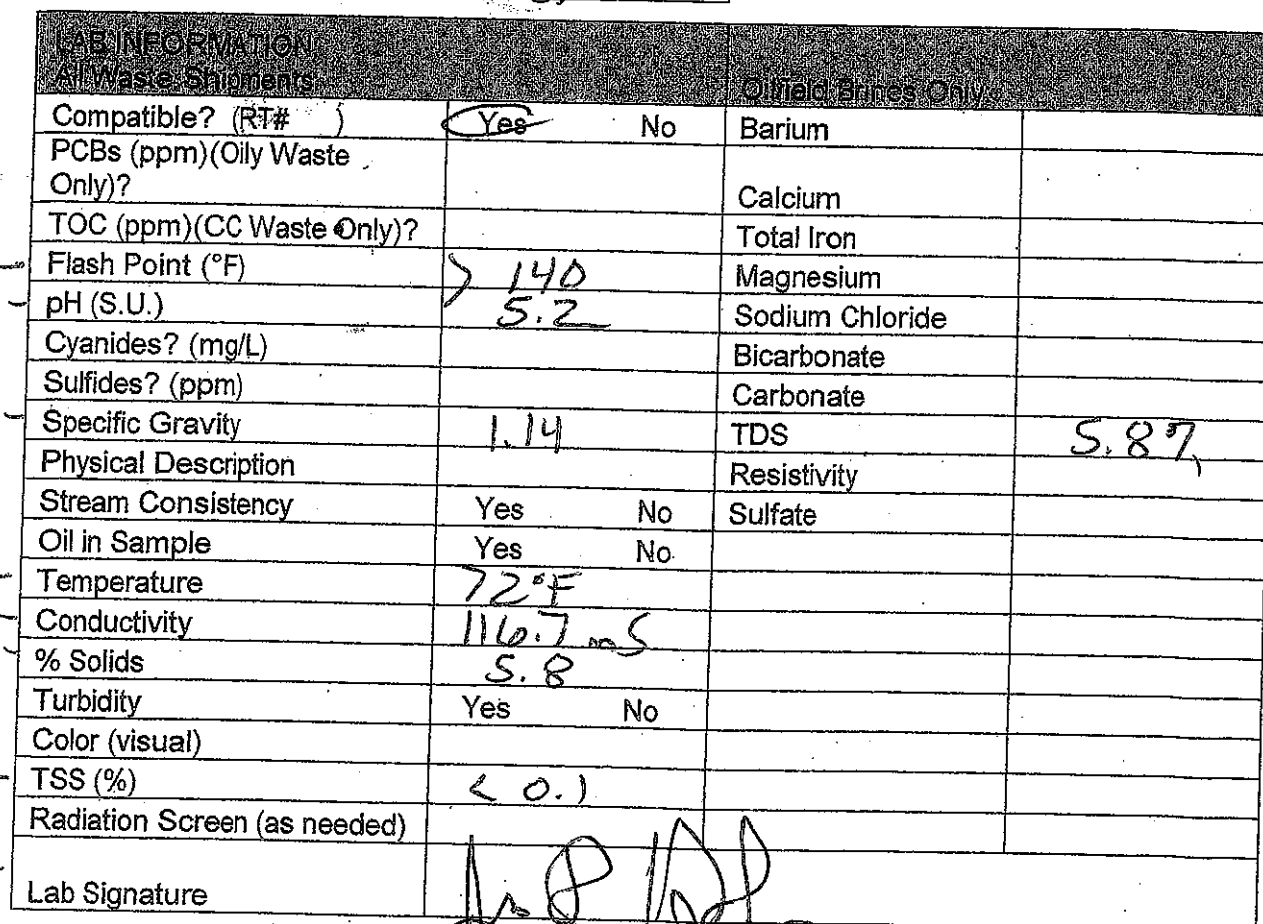 LAB INFORMATION
All Waste Shipments Oilfield Brines Only
Compatible? (RT# ) Yes No Barium
PCBs (ppm)(Oily Waste
Only)? Calcium
TOC (ppm)(CC Waste Only)? Total Iron
Flash Point (°F) > 140 Magnesium
pH (S.U.) 5.2 Sodium Chloride
Cyanides? (mg/L) Bicarbonate
Sulfides? (ppm) Carbonate
Specific Gravity 1.14 TDS 5.8%
Physical Description Resistivity
Stream Consistency Yes No Sulfate
Oil in Sample Yes No
Temperature 72°F
Conductivity 116.7 mS
% Solids 5.8
Turbidity Yes No
Color (visual)
TSS (%) < 0.1
Radiation Screen (as needed)
Lab Signature